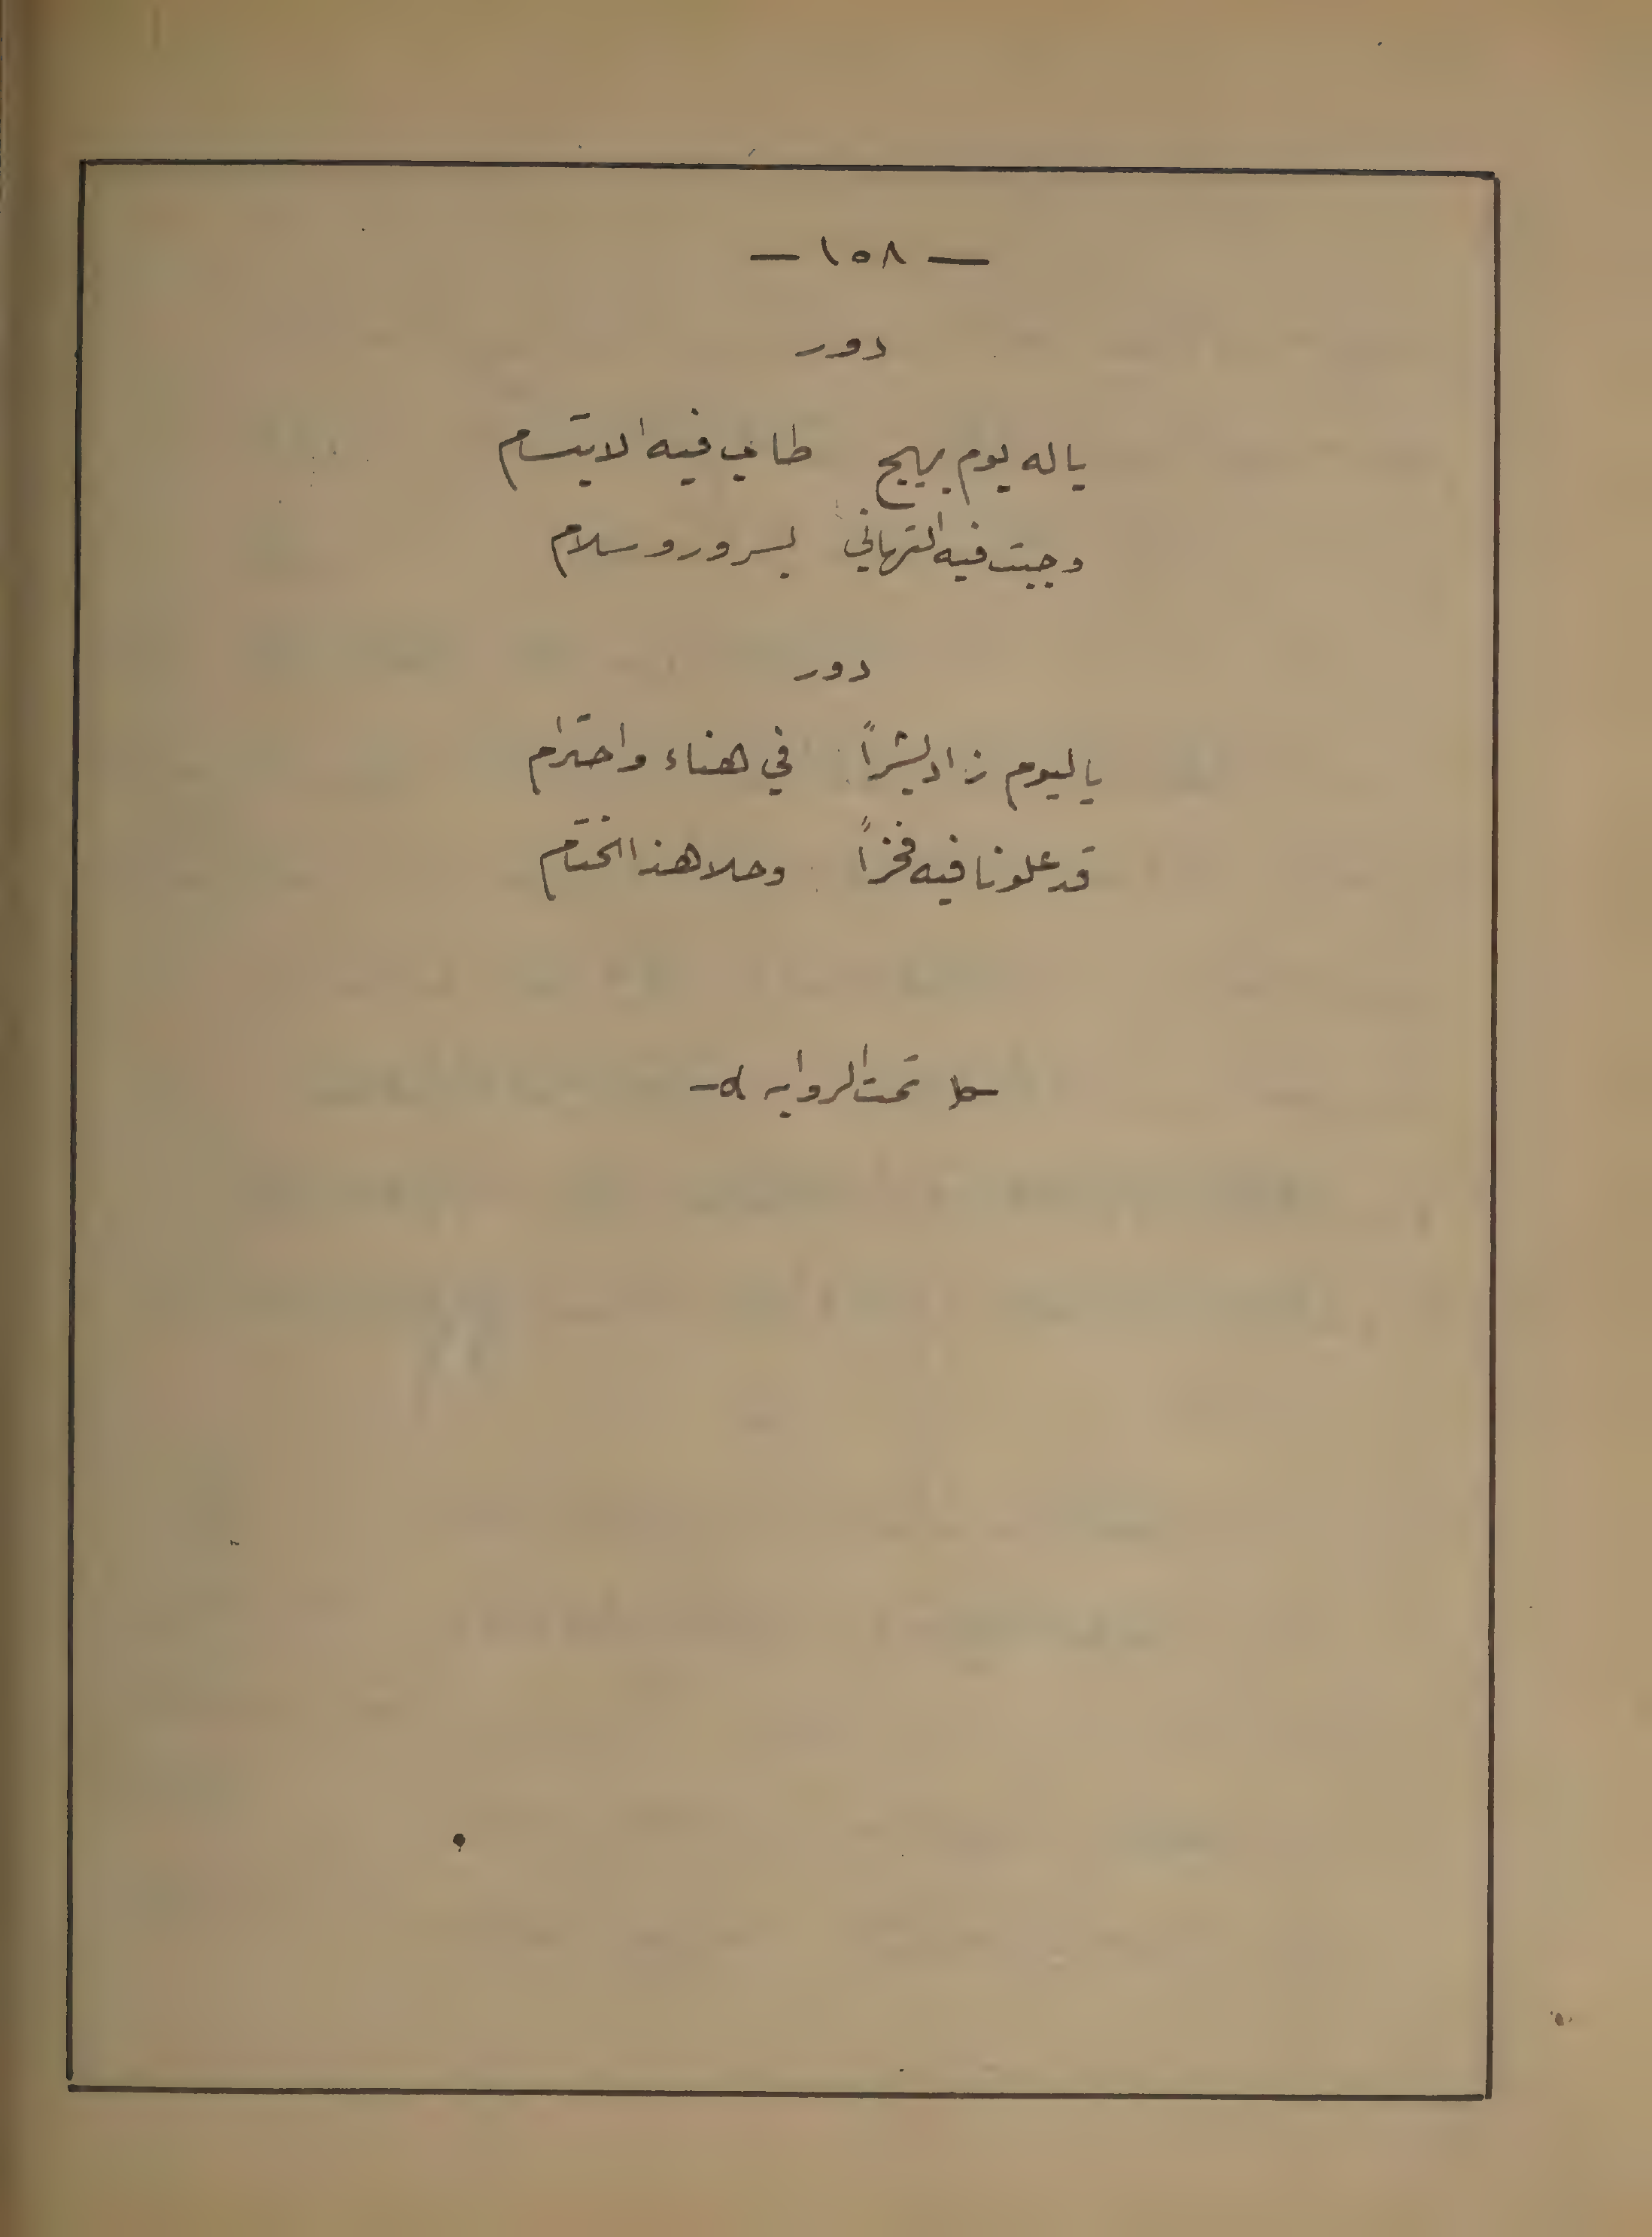 — ١٥٨ —
دور
ياله يوم بهيج طاب فيه الابتسام
وجبت فيه التهاني بسرور وسلام
دور
ياليوم زاد بشراً في هناء واحترام
قد علونا فيه فخراً وحلا هذا الختام
تمت الروايه